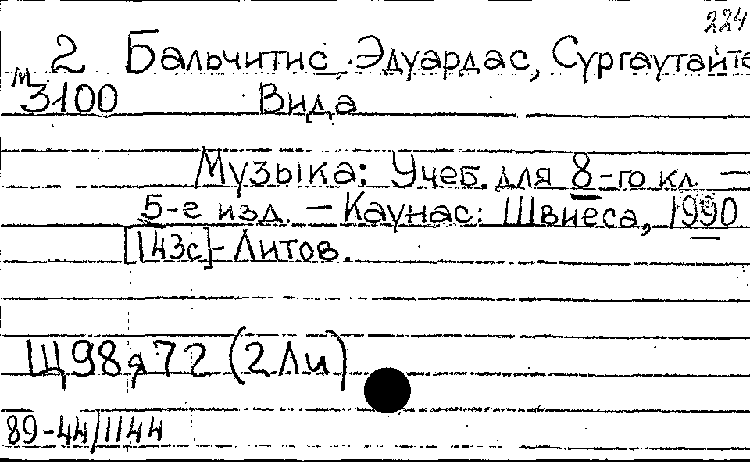 224
2 Бальчитис Эдуардас, Сургаутайте
М 3100 Вида
Музыка: Учеб. для 8-го кл —
5-е изд. — Каунас: Швиеса, 1990
[143с] - Литов.
Щ98я72 (2Ли)
89-44/1144